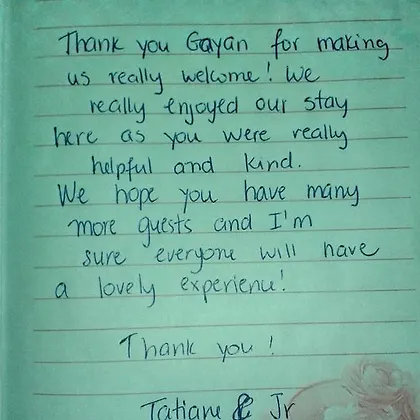 Thank you Gayan for making
us really welcome! We
really enjoyed our stay
here as you were really
helpful and kind.
We hope you have many
more guests and I'm
sure everyone will have
a lovely experience!
Thank you!
Tatiane & Jr